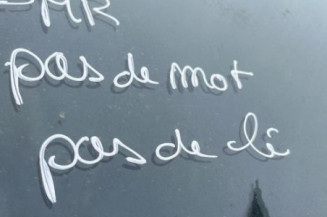 pas de mot
pas de